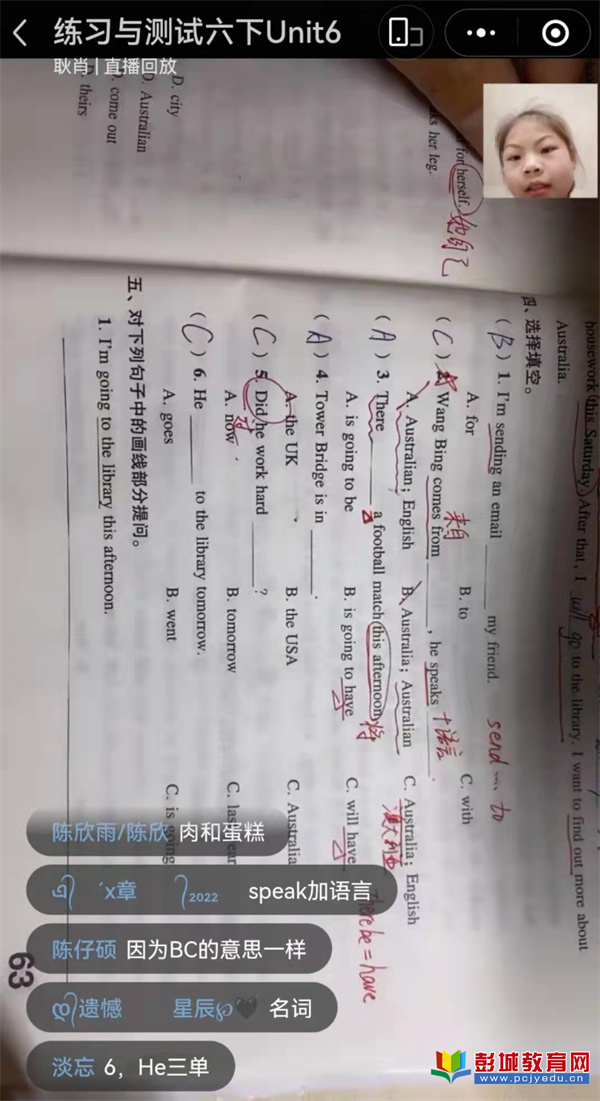 练习与测试六下Unit6
耿肖 | 直播回放
housework this Saturday. After that, I will go to the library. I want to find out more about
Australia.
for herself. 她自己
her leg.
D. city
D. Australian
come out
theirs
四、选择填空。
(B) 1. I'm sending an email ______ my friend. send … to
A. for B. to C. with
(C) 2. Wang Bing comes from ______, he speaks ______.
来自 +语言
A. Australian; English B. Australia; Australian C. Australia; English
澳大利亚
(A) 3. There ______ a football match this afternoon. 将
A. is going to be B. is going to have C. will have
there be = have
(A) 4. Tower Bridge is in ______.
A. the UK B. the USA C. Australia
(C) 5. Did he work hard ______?
A. now B. tomorrow C. last year
(C) 6. He ______ to the library tomorrow.
A. goes B. went C. is going
五、对下列句子中的画线部分提问。
1. I'm going to the library this afternoon.
63
陈欣雨/陈欣 肉和蛋糕
x章 2022 speak加语言
陈仔硕 因为BC的意思一样
遗憾 星辰 名词
淡忘 6，He三单
彭城教育网
www.pcjyedu.cn